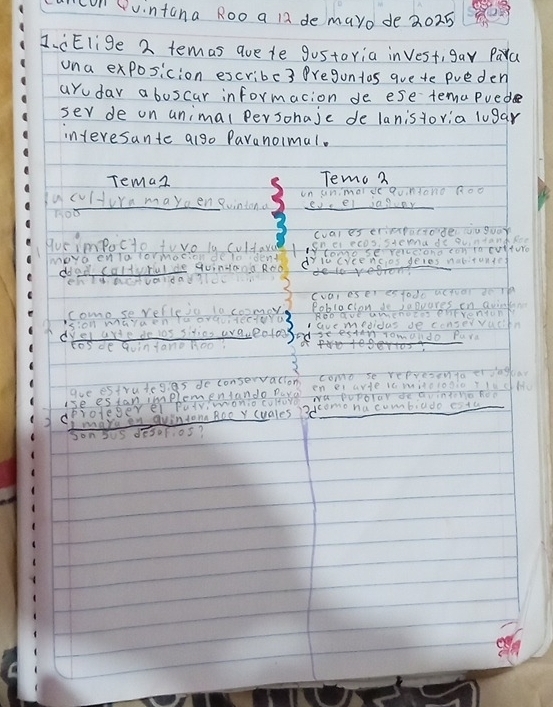 Cancún Quintana Roo a 12 de mayo de 2025
1.¿Elige 2 temas que te gustaria investigar Para
una exposicion escribe 3 Preguntas que te pueden
ayudar a buscar informacion de ese tema puede
ser de un animal Personaje de la historia lugar
interesante algo Paranormal.
Tema 1
la cultura maya en Quintana
Roo
1 Que impacto tuvo la cultura
maya en la formacion de la ident
dad cultural de Quintana Roo
en la actualidad
como se refleja la cosmov
ision maya en la arquitectura
y el arte de los sitios arqueolo
cos de Quintana Roo?
que estrategias de conservacion
se estan implementando para
3 proteger el Patrimonio cultura
maya en Quintana Roo y cuales
son sus desafios?
Tema 2
un animal de Quintana Roo
es el jaguar
cual es el impacto del jaguar
en el ecosistema de Quintana Roo
y como se relaciona con la cultura
y creencias de los habitantes
de la region?
cual es el estado actual de la
Poblacion de jaguares en Quintana
Roo que amenazas enfrentan
y que medidas de conservacion
se estan tomando Para
protegerlos?
como se representa el jaguar
en el arte la mitologia y la cultu
ra Popular de Quintana Roo
como ha cambiado esta